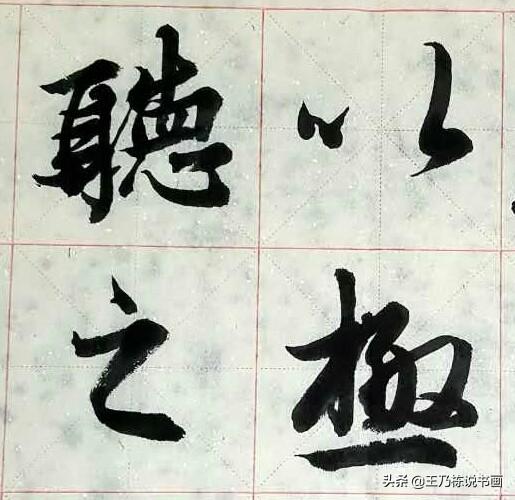 以極
聽之
头条 @王乃栋说书画